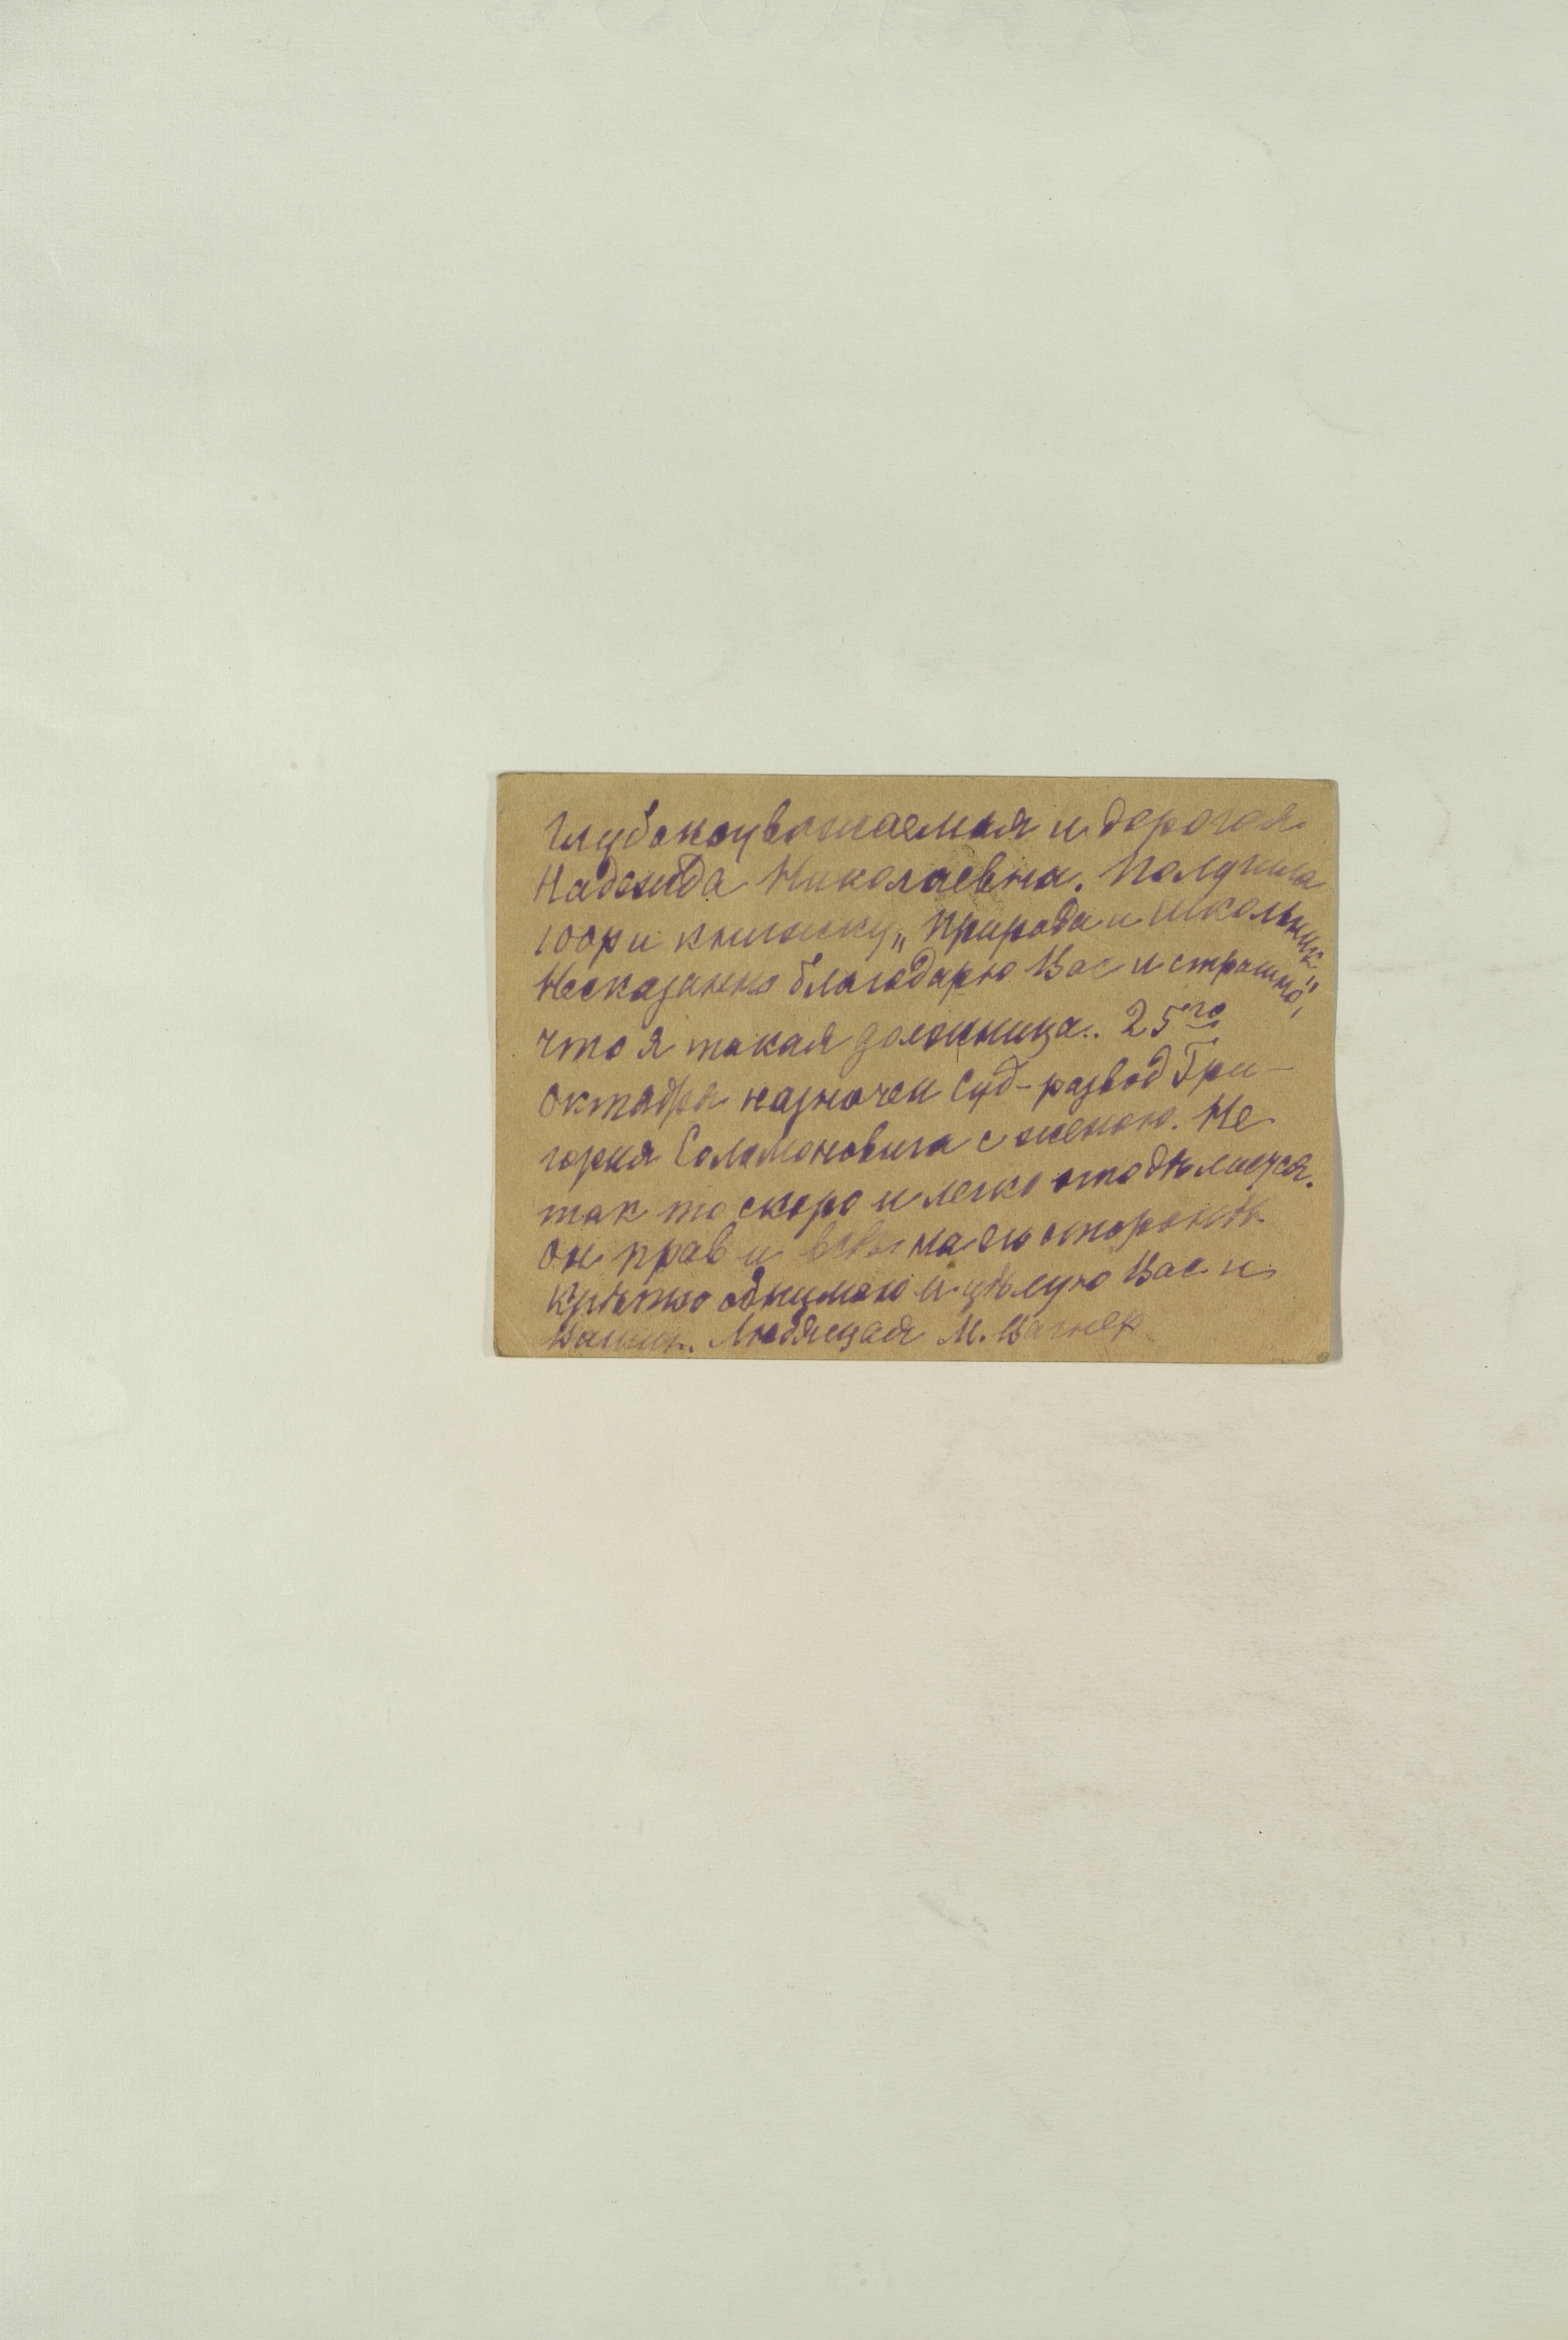 Глубокоуважаемая и дорогая
Надежда Николаевна. Получила
100р и книжку „Природа и школьник"
Несказанно благодарю Вас и страшно,
что я такая должница.. 25го
Октября назначен Суд-развод Гри-
гория Соломоновича с женою. Не
так то скоро и легко отодѣлается.
Он прав и всѣ на его сторонѣ
Крѣпко обнимаю и цѣлую Вас и
Ваших. Любящая М. Вагнер